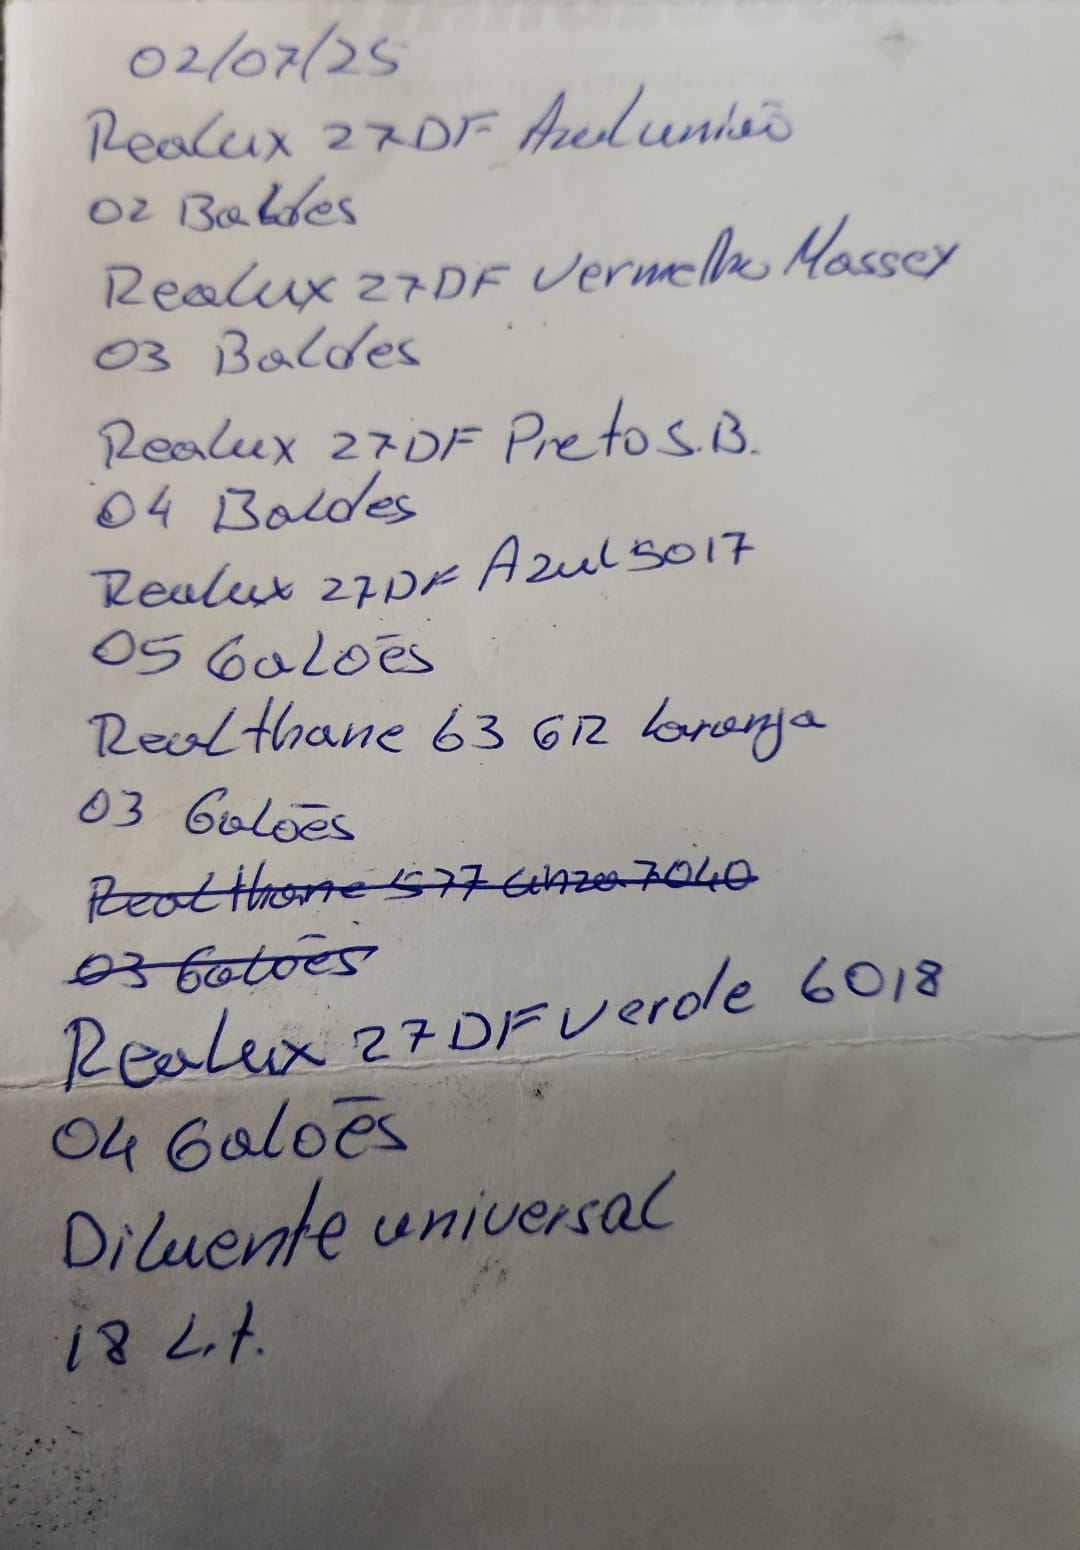 02/07/25
Realux 27DF Azul união
02 Baldes
Realux 27DF Vermelho Massey
03 Baldes
Realux 27DF Preto S.B.
04 Baldes
Realux 27DF Azul 5017
05 Galões
Realthane 63 GR laranja
03 Galões
Realthane 577 cinza 7040
03 Galões
Realux 27DF verde 6018
04 Galões
Diluente universal
18 L.t.